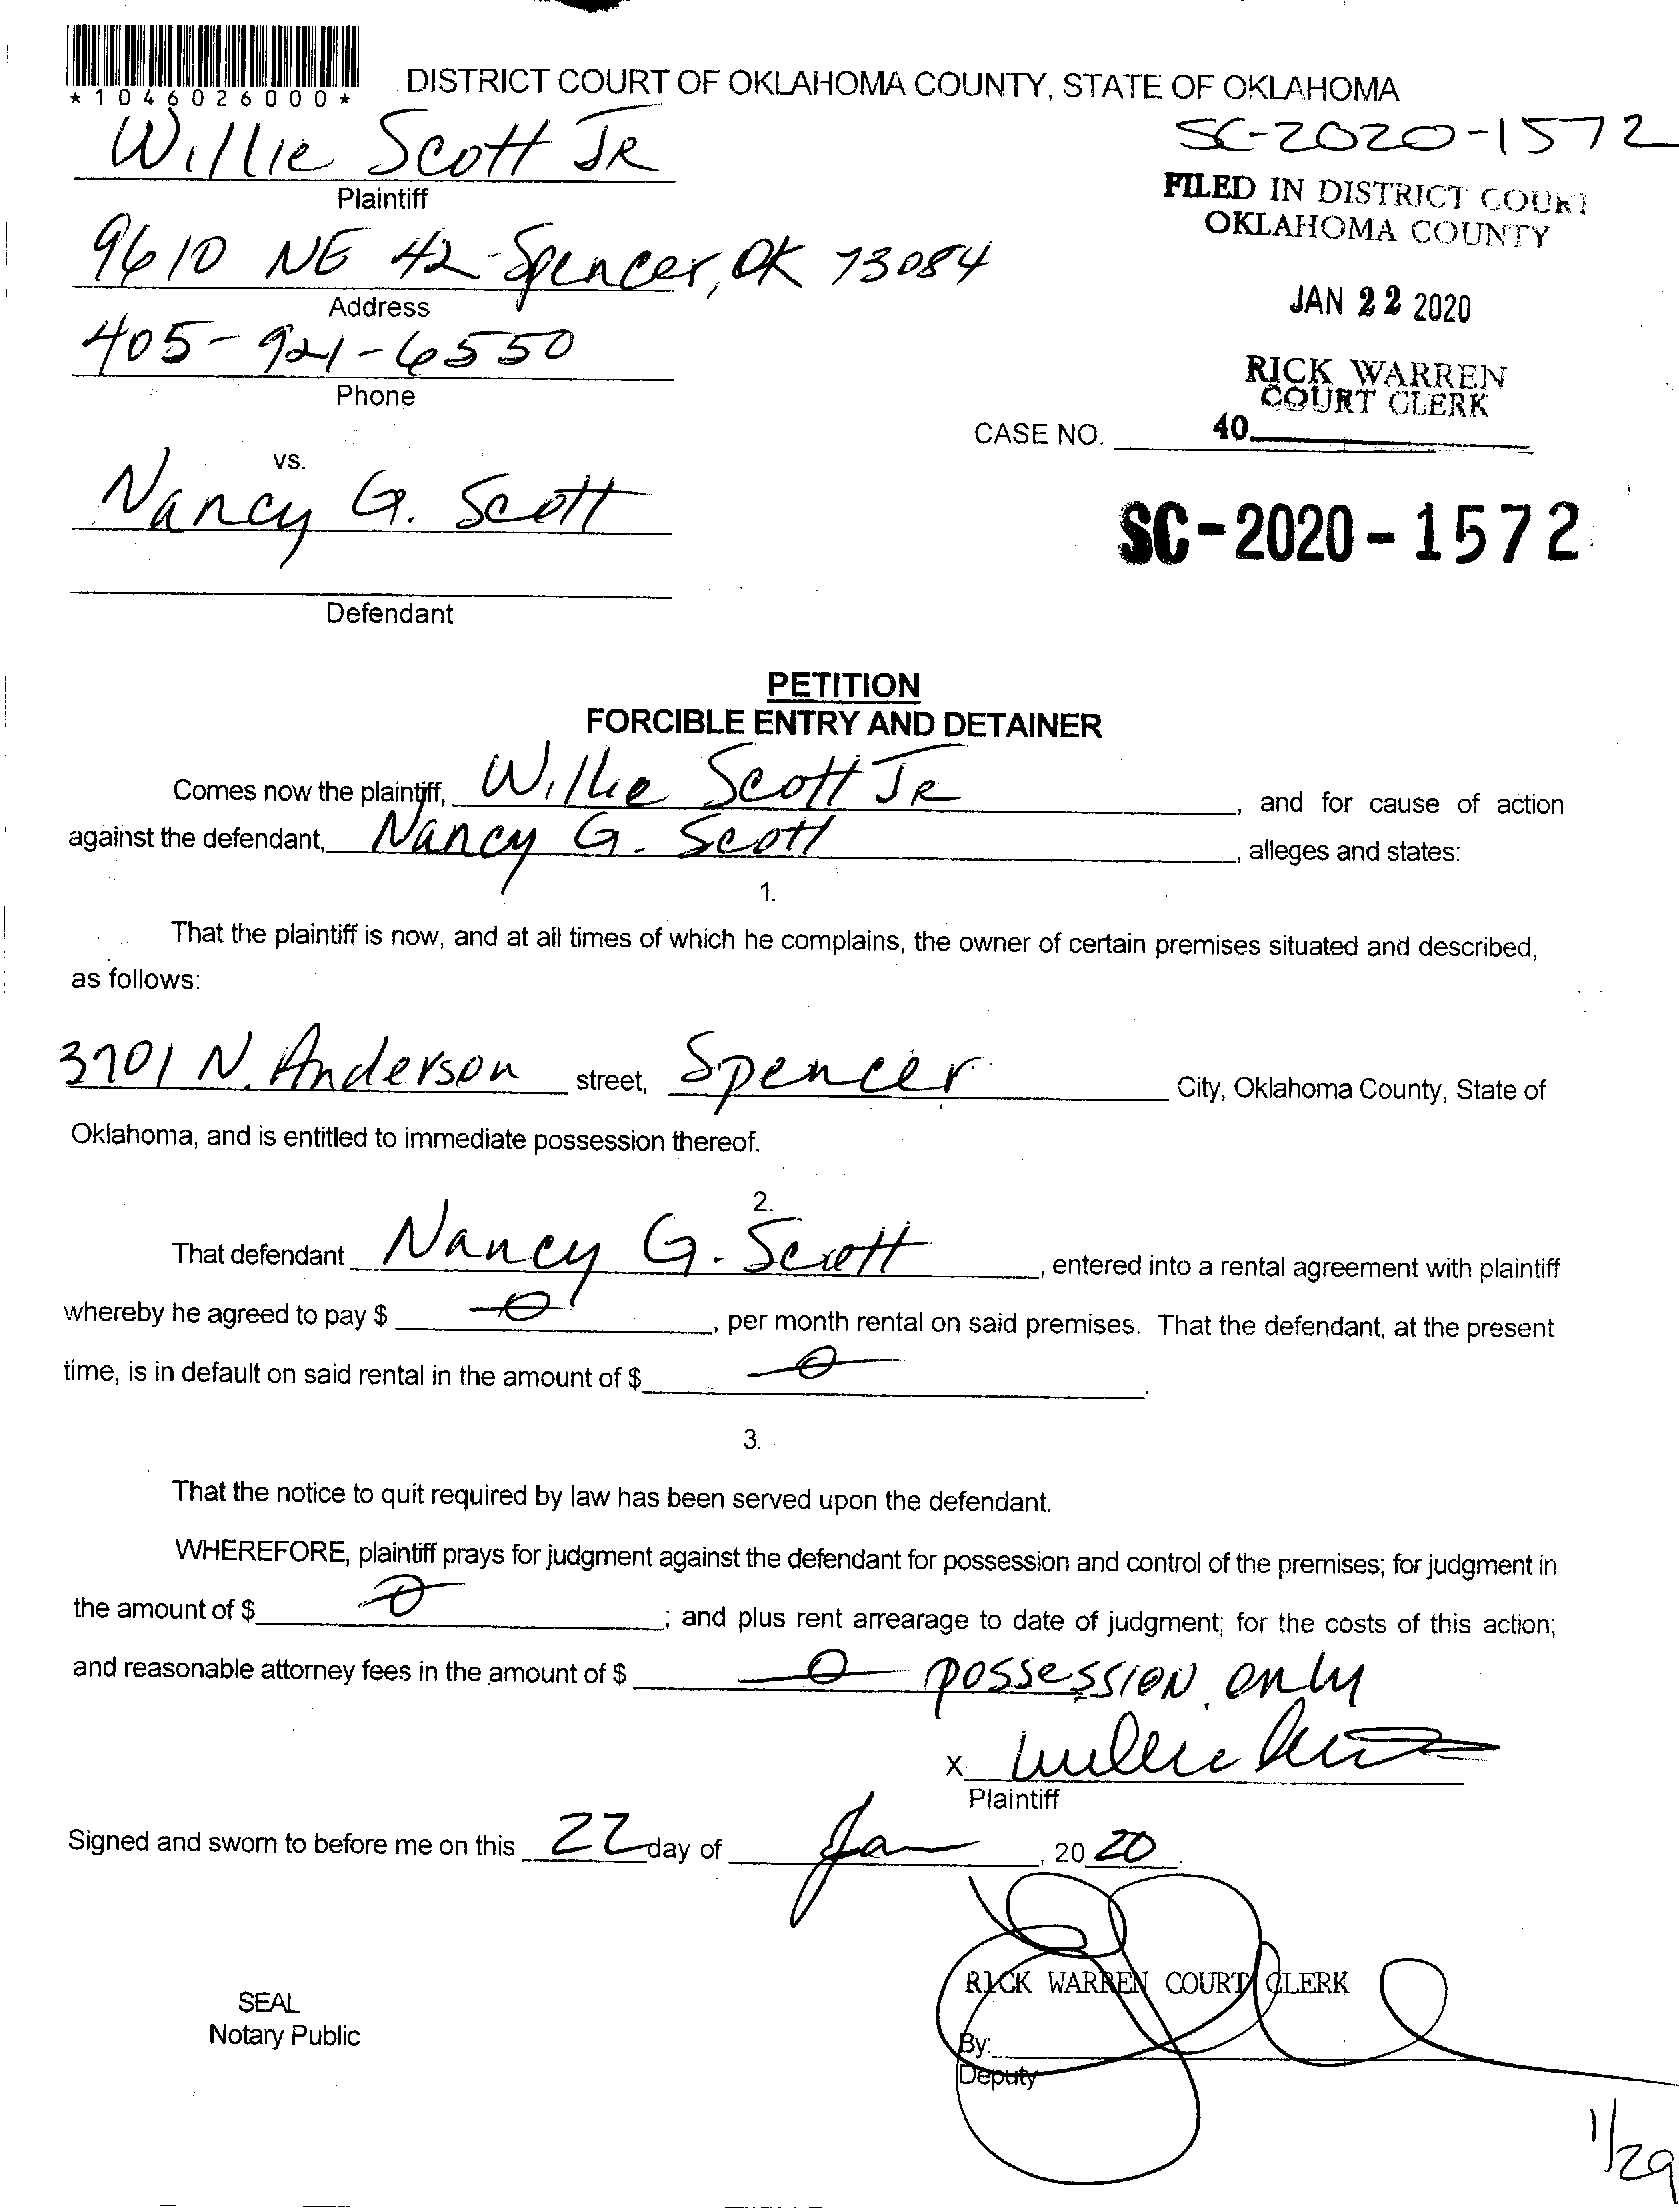 *1046026000*
DISTRICT COURT OF OKLAHOMA COUNTY, STATE OF OKLAHOMA
Willie Scott JR
SC-2020-1572
Plaintiff
FILED IN DISTRICT COURT
OKLAHOMA COUNTY
9610 NE 42 - Spencer, OK 73084
Address
JAN 22 2020
405-921-6550
Phone
RICK WARREN
COURT CLERK
CASE NO.
40
vs.
Nancy G. Scott
SC-2020-1572
Defendant
PETITION
FORCIBLE ENTRY AND DETAINER
Comes now the plaintiff, Willie Scott JR, and for cause of action
against the defendant, Nancy G. Scott, alleges and states:
1.
That the plaintiff is now, and at all times of which he complains, the owner of certain premises situated and described,
as follows:
3701 N. Anderson street, Spencer City, Oklahoma County, State of
Oklahoma, and is entitled to immediate possession thereof.
2.
That defendant Nancy G. Scott, entered into a rental agreement with plaintiff
whereby he agreed to pay $ -0-, per month rental on said premises. That the defendant, at the present
time, is in default on said rental in the amount of $ -0-.
3.
That the notice to quit required by law has been served upon the defendant.
WHEREFORE, plaintiff prays for judgment against the defendant for possession and control of the premises; for judgment in
the amount of $ -0-; and plus rent arrearage to date of judgment; for the costs of this action;
and reasonable attorney fees in the amount of $ -0- possession only
X Willie Scott
Plaintiff
Signed and sworn to before me on this 22 day of Jan, 2020.
RICK WARREN COURT CLERK
SEAL
Notary Public
By:
Deputy
1/29